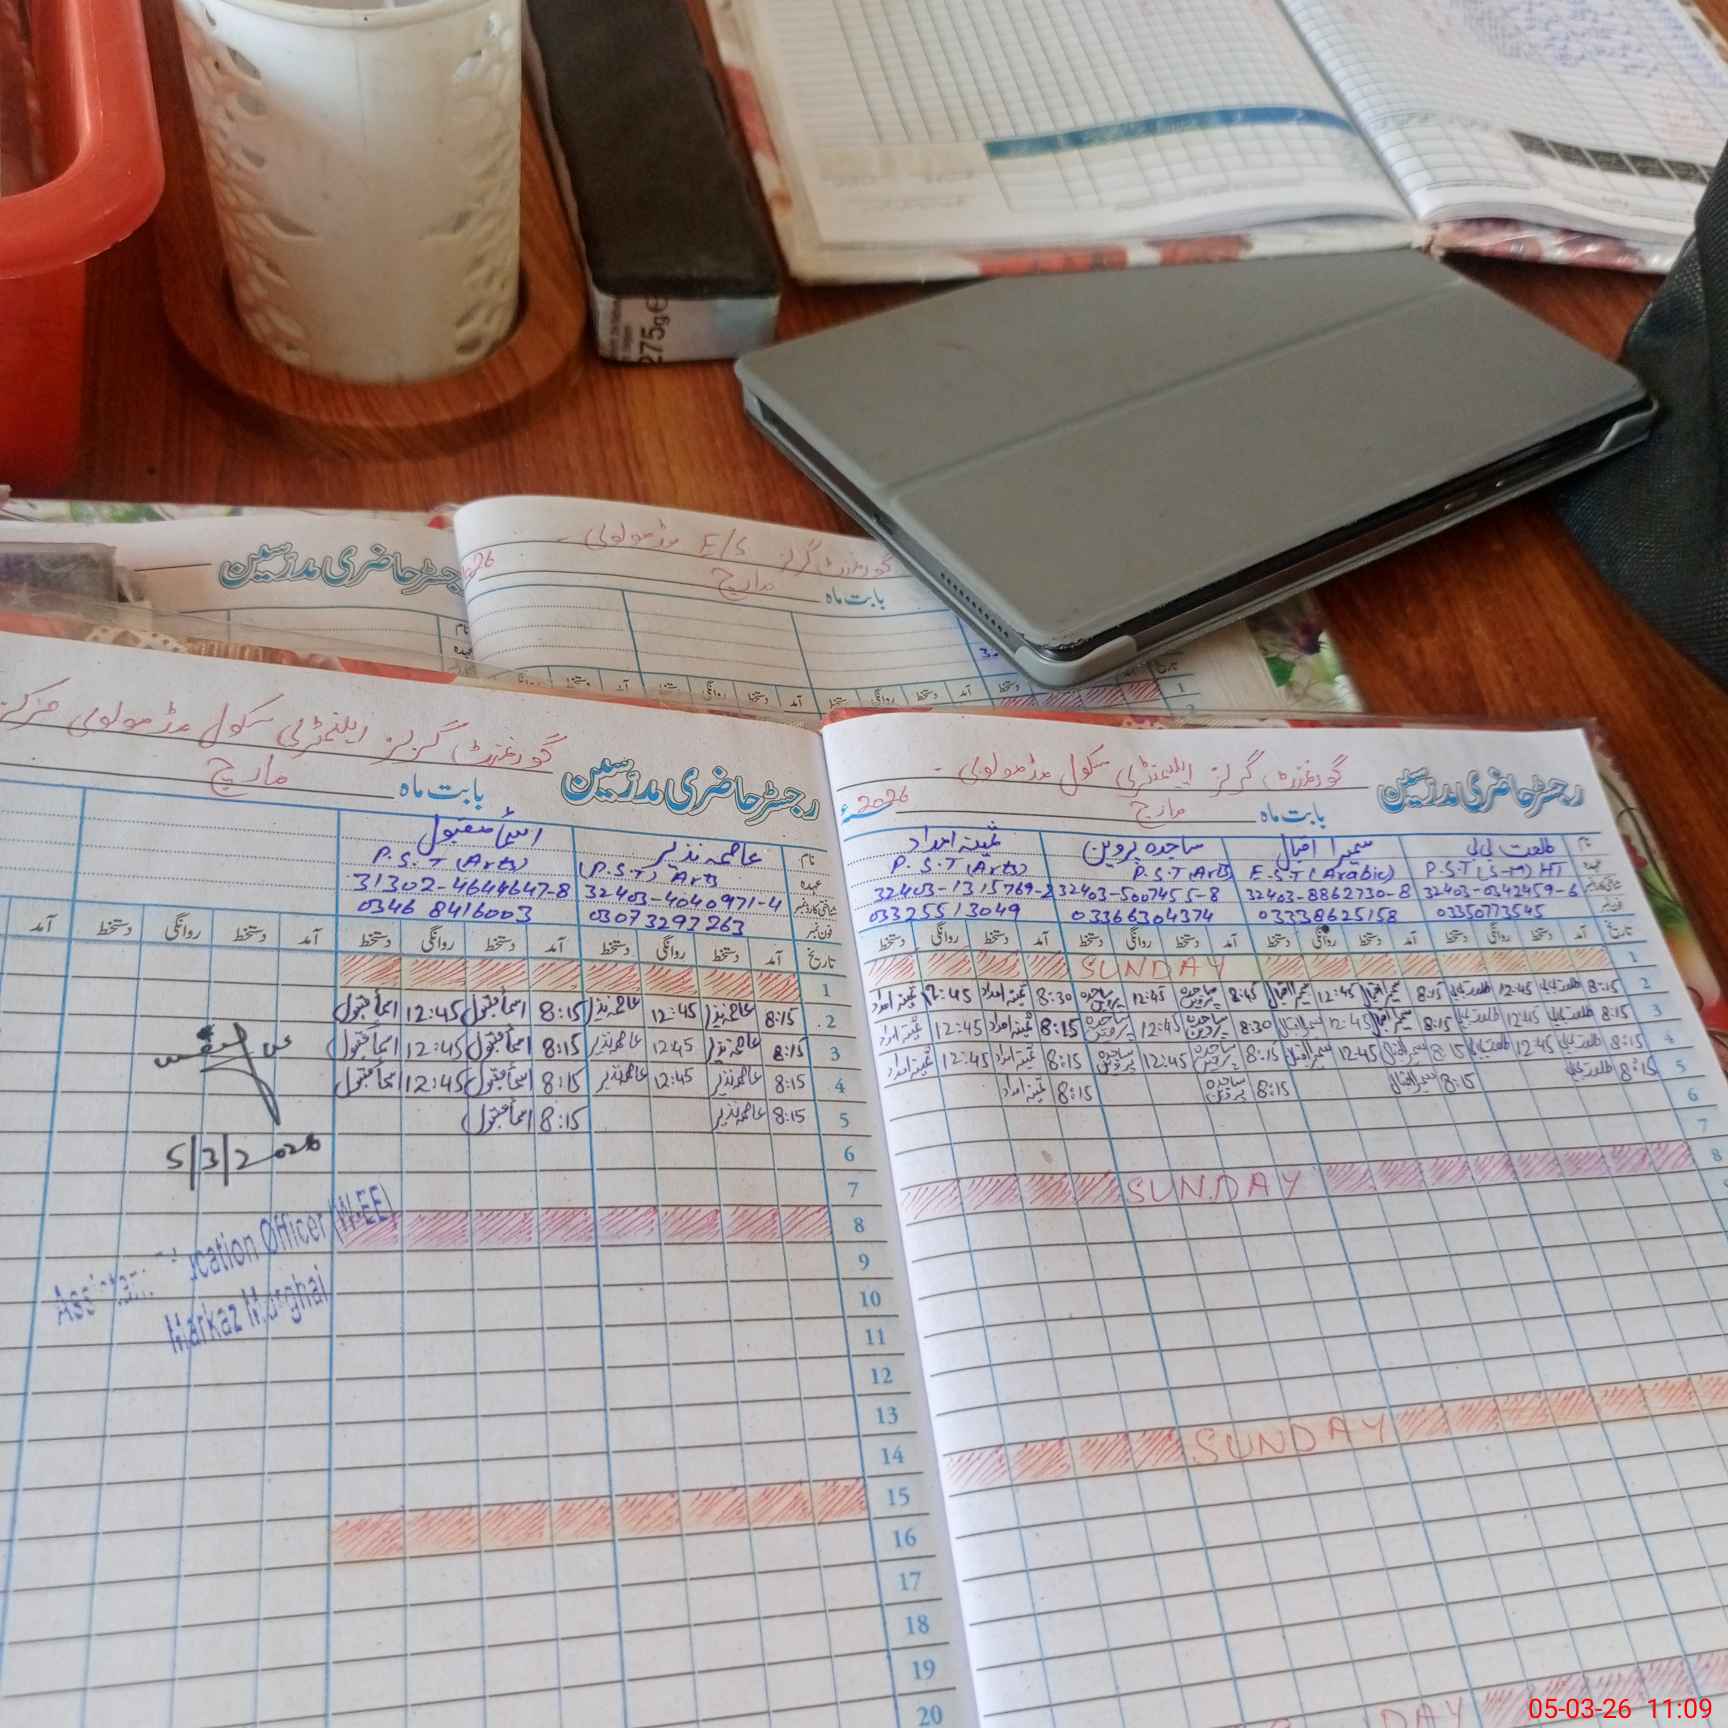 275g
رجسٹر حاضری مدرسین
گورنمنٹ گرلز E/S مڈ مولوی
بابت ماہ مارچ
گورنمنٹ گرلز ایلیمنٹری سکول مڈ مولوی مرکز
رجسٹر حاضری مدرسین
بابت ماہ مارچ
نام عاصمہ نذیر اسماء مقبول
عہدہ (P.S.T) Arts P.S.T (Arts)
شناختی کارڈ نمبر 32403-4040971-4 31302-4644647-8
فون نمبر 03073297263 0346 8416003
تاریخ آمد دستخط روانگی دستخط آمد دستخط روانگی دستخط آمد دستخط روانگی دستخط آمد
1
2 8:15 عاصمہ نذیر 12:45 عاصمہ نذیر 8:15 اسماء مقبول 12:45 اسماء مقبول
3 8:15 عاصمہ نذیر 12:45 عاصمہ نذیر 8:15 اسماء مقبول 12:45 اسماء مقبول
4 8:15 عاصمہ نذیر 12:45 عاصمہ نذیر 8:15 اسماء مقبول 12:45 اسماء مقبول
5 8:15 عاصمہ نذیر 8:15 اسماء مقبول
6
7
8
9
10
11
12
13
14
15
16
17
18
19
20
5/3/2026
Assistant Education Officer (W-EE)
Markaz Murghai
گورنمنٹ گرلز ایلیمنٹری سکول مڈ مولوی
رجسٹر حاضری مدرسین
بابت ماہ مارچ 2026ء
نام طلعت بی بی سمیرا اقبال ساجدہ پروین ثمینہ امداد
عہدہ P.S.T (S-M) HT E.S.T (Arabic) P.S.T (Arts) P.S.T (Arts)
شناختی کارڈ نمبر 32403-0342459-6 32403-8862730-8 32403-5007455-8 32403-1315769-2
فون نمبر 03350773545 03338625158 03366304374 03325513049
تاریخ آمد دستخط روانگی دستخط آمد دستخط روانگی دستخط آمد دستخط روانگی دستخط آمد دستخط روانگی دستخط
1 SUNDAY
2 8:15 طلعت بی بی 12:45 طلعت بی بی 8:15 سمیرا اقبال 12:45 سمیرا اقبال 8:45 ساجدہ پروین 12:45 ساجدہ پروین 8:30 ثمینہ امداد 12:45 ثمینہ امداد
3 8:15 طلعت بی بی 12:45 طلعت بی بی 8:15 سمیرا اقبال 12:45 سمیرا اقبال 8:30 ساجدہ پروین 12:45 ساجدہ پروین 8:15 ثمینہ امداد 12:45 ثمینہ امداد
4 8:15 طلعت بی بی 12:45 طلعت بی بی 8:15 سمیرا اقبال 12:45 سمیرا اقبال 8:15 ساجدہ پروین 12:45 ساجدہ پروین 8:15 ثمینہ امداد 12:45 ثمینہ امداد
5 8:15 طلعت بی بی 8:15 سمیرا اقبال 8:15 ساجدہ پروین 8:15 ثمینہ امداد
6
7
8 SUNDAY
SUNDAY
DAY
05-03-26 11:09